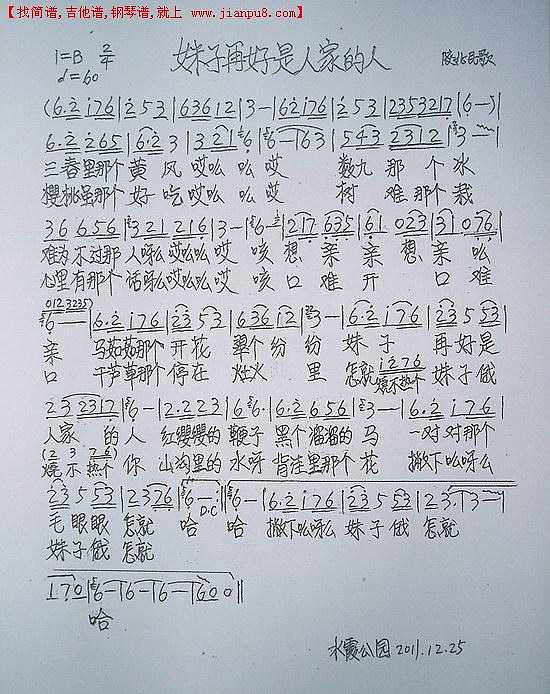 【找简谱,吉他谱,钢琴谱,就上 www.jianpu8.com】
妹子再好是人家的人
1=B 2/4
♩=60
陕北民歌
(6·2 i76|2 53|63612|3-|62i76|2 53|2353217|6-)
6·2 265|6·2 3|3 21|6|6-163|543 2312|3
三春里那个黄风哎么么哎 数九那个冰
樱桃虽那个好吃哎么么哎 树难那个栽
36 656|3 21 216|3-|6-|217 635|61 023|31 076|
难为不过那人呀么哎么么哎 咳想亲亲想亲么
心里有那个话呀么哎么么哎 咳口难开 口难
0123235)
6-|6·2 i76|23 53|636 i2|3-|6·2 i76|23 553|
亲 马茹茹那个开花 翠个纷纷 妹子 再好是
口 干芦草那个停在 灶火里 怎就 妹子俄
i276
烧不热个
23 2317|6-|2·223|6 6·|6·2 656|3-|6·2 i76|
人家的人 红缨缨的鞭子 黑个溜溜的马 一对对那个
(2 3 7 6)
烧不热个你 山沟里的水呀 背洼里那个花 撇下么呀么
23 5 53|2376|6-|6-|6·2 i76|23 553|23·|3-|
D.C
毛眼眼怎就 哈 哈 撇下么呀么妹子俄怎就
妹子俄怎就
170|6-|6-|6-|600||
哈
水霞公园 2011.12.25